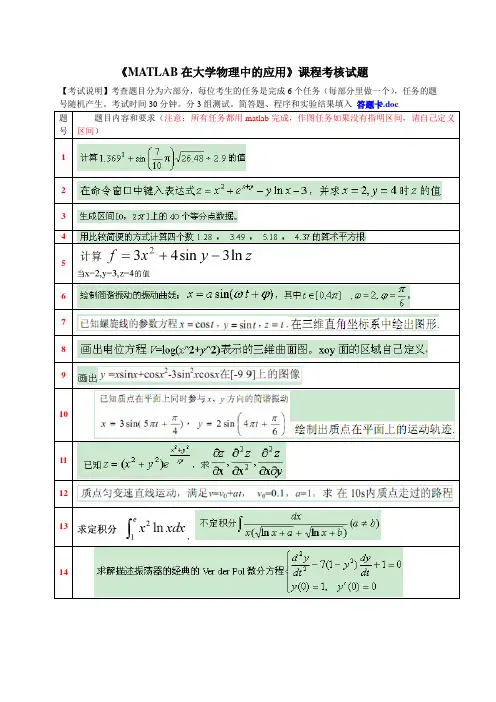 《MATLAB 在大学物理中的应用》课程考核试题
【考试说明】考查题目分为六部分，每位考生的任务是完成 6 个任务（每部分里做一个），任务的题
号随机产生。考试时间 30 分钟。分 3 组测试。简答题、程序和实验结果填入 答题卡.doc
题号 题目内容和要求（注意：所有任务都用 matlab 完成，作图任务如果没有指明区间，请自己定义
区间）
1 计算 1.369³ + sin(7/10 π)√26.48 ÷ 2.9 的值
2 在命令窗口中键入表达式 z = x² + e^(x+y) − y ln x − 3，并求 x = 2, y = 4 时 z 的值
3 生成区间[0, 2π]上的 40 个等分点数据。
4 用比较简便的方式计算四个数 1.28 ， 3.49 ， 5.18 ， 4.37 的算术平方根
5 计算 f = 3x² + 4sin y − 3ln z
当x=2,y=3,z=4的值
6 绘制简谐振动的振动曲线：x = a sin(ωt + φ)，其中 t∈[0,4π] ，ω=2, φ=π/6。
7 已知螺旋线的参数方程 x = cos t，y = sin t，z = t. 在三维直角坐标系中绘出图形.
8 画出电位方程 V=log(x^2+y^2)表示的三维曲面图。xoy 面的区域自己定义.
9 画出 y =xsinx+cosx²-3sin²xcosx在[-9 9]上的图像
10 已知质点在平面上同时参与 x、y 方向的简谐振动
x = 3sin(5πt + π/4)， y = 2sin(4πt + π/6) 绘制出质点在平面上的运动轨迹.
11 已知 z = (x² + y²)e^((x²+y²)/xy)，求 ∂z/∂x, ∂²z/∂x², ∂²z/∂x∂y
12 质点匀变速直线运动，满足v=v₀+at， v₀=0.1，a=1。求 在 10s内质点走过的路程
13 求定积分 ∫₁^e x² ln xdx . 不定积分 ∫ dx/(x(√(ln x + a) + √(ln x + b))) (a ≠ b)
14 求解描述振荡器的经典的 Ver der Pol 微分方程 { d²y/dt² − 7(1 − y²)dy/dt + 1 = 0
y(0) = 1, y′(0) = 0